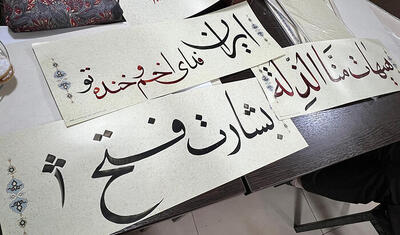 ایران فدای اخم و خنده تو
هیهات منا الذلة
بشارت فتح